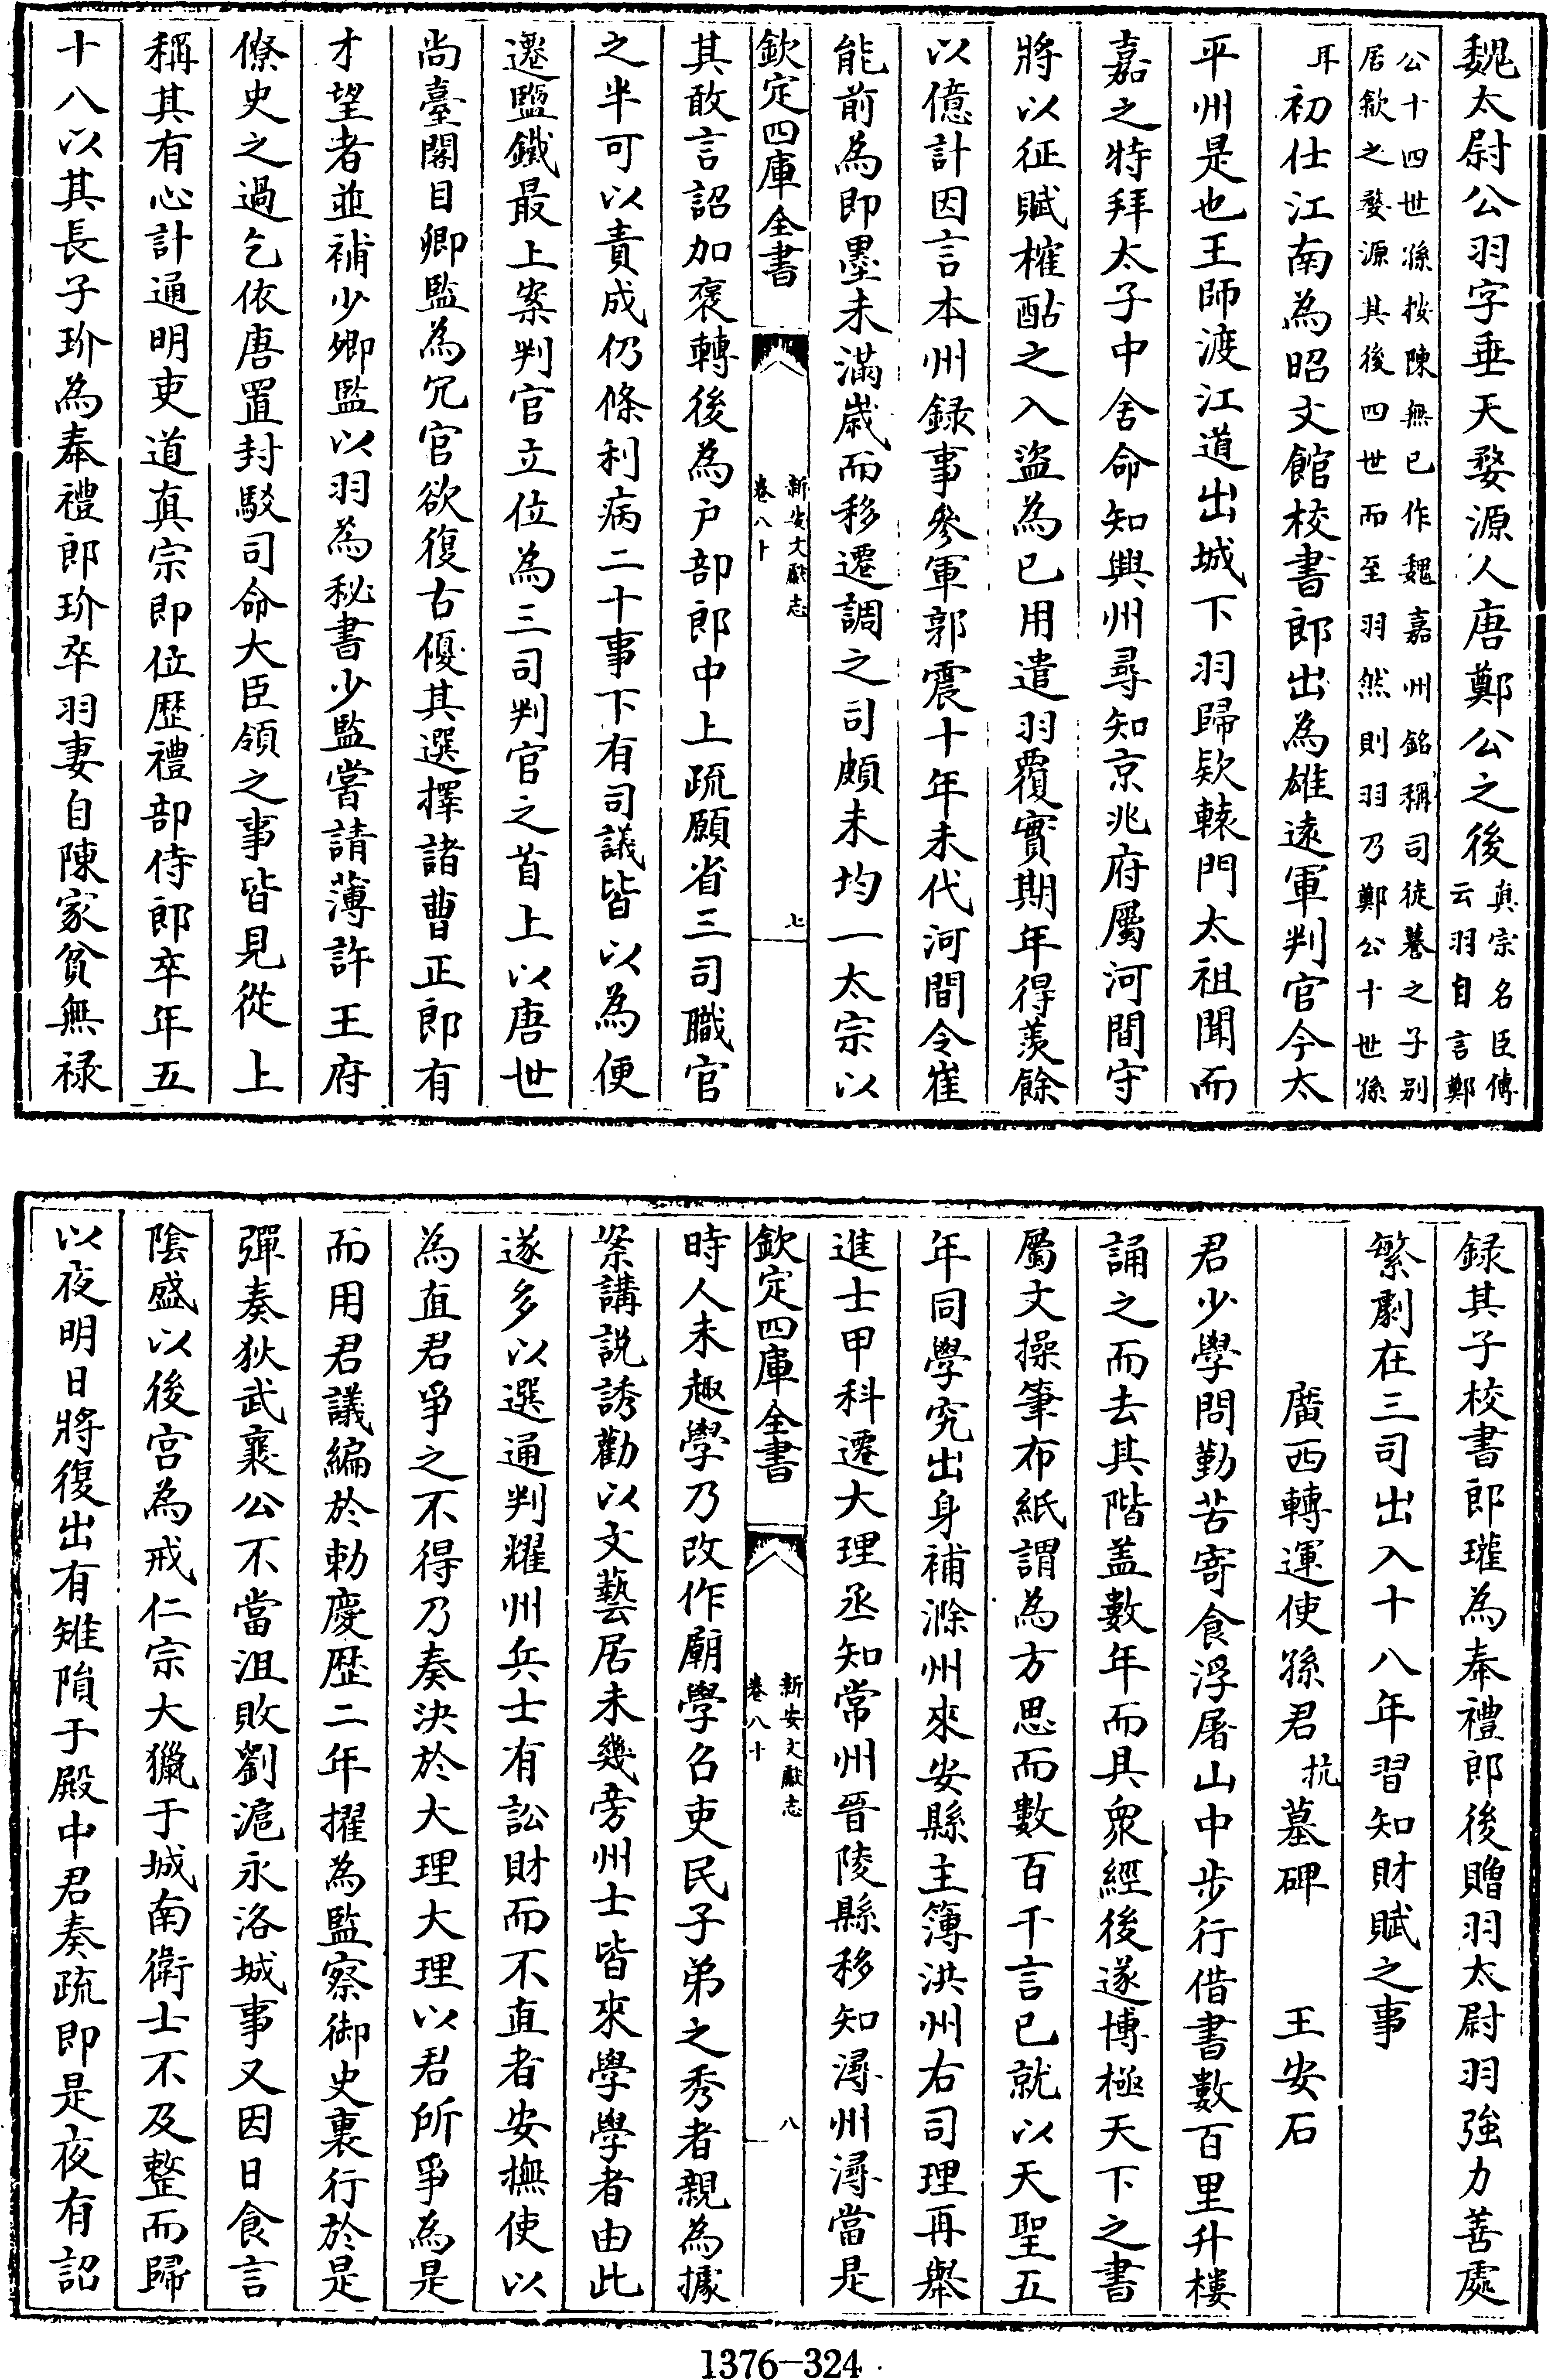 魏太尉公羽字垂天婺源人唐鄭公之後真宗名臣傳
云羽自言鄭
公十四世孫按陳無已作魏嘉州銘稱司徒暮之子别
居歙之婺源其後四世而至羽然則羽乃鄭公十世孫
耳初仕江南為昭文館校書郎出為雄逺軍判官今太
平州是也王師渡江道出城下羽歸欵轅門太祖聞而
嘉之特拜太子中舍命知興州尋知京兆府屬河間守
將以征賦榷酤之入盜為已用遣羽覆實期年得羨餘
以億計因言本州録事參軍郭震十年未代河間令崔
能前為即墨未滿嵗而移遷調之司頗未均一太宗以
欽定四庫全書
新安文獻志
卷八十
七
其敢言詔加褒轉後為户部郎中上疏願省三司職官
之半可以責成仍條利病二十事下有司議皆以為便
遷鹽鐵最上案判官立位為三司判官之首上以唐世
尚臺閣目卿監為冗官欲復古優其選擇諸曹正郎有
才望者並補少卿監以羽為秘書少監嘗請薄許王府
僚史之過乞依唐置封駁司命大臣領之事皆見從上
稱其有心計通明吏道真宗即位歴禮部侍郎卒年五
十八以其長子玠為奉禮郎玠卒羽妻自陳家貧無禄
録其子校書郎瓘為奉禮郎後贈羽太尉羽強力善處
繁劇在三司出入十八年習知財賦之事
廣西轉運使孫君抗墓碑 王安石
君少學問勤苦寄食浮屠山中步行借書數百里升樓
誦之而去其階盖數年而具衆經後遂博極天下之書
屬文操筆布紙謂為方思而數百千言已就以天聖五
年同學究出身補滁州來安縣主簿洪州右司理再舉
進士甲科遷大理丞知常州晉陵縣移知潯州潯當是
欽定四庫全書
新安文獻志
卷八十
八
時人未趣學乃改作廟學召吏民子弟之秀者親為據
案講説誘勸以文藝居未幾旁州士皆來學學者由此
遂多以選通判耀州兵士有訟財而不直者安撫使以
為直君爭之不得乃奏決於大理大理以君所爭為是
而用君議編於勅慶歴二年擢為監察御史裏行於是
彈奏狄武襄公不當沮敗劉滬永洛城事又因日食言
隂盛以後宫為戒仁宗大獵于城南衛士不及整而歸
以夜明日將復出有雉隕于殿中君奏疏即是夜有詔
1376-324